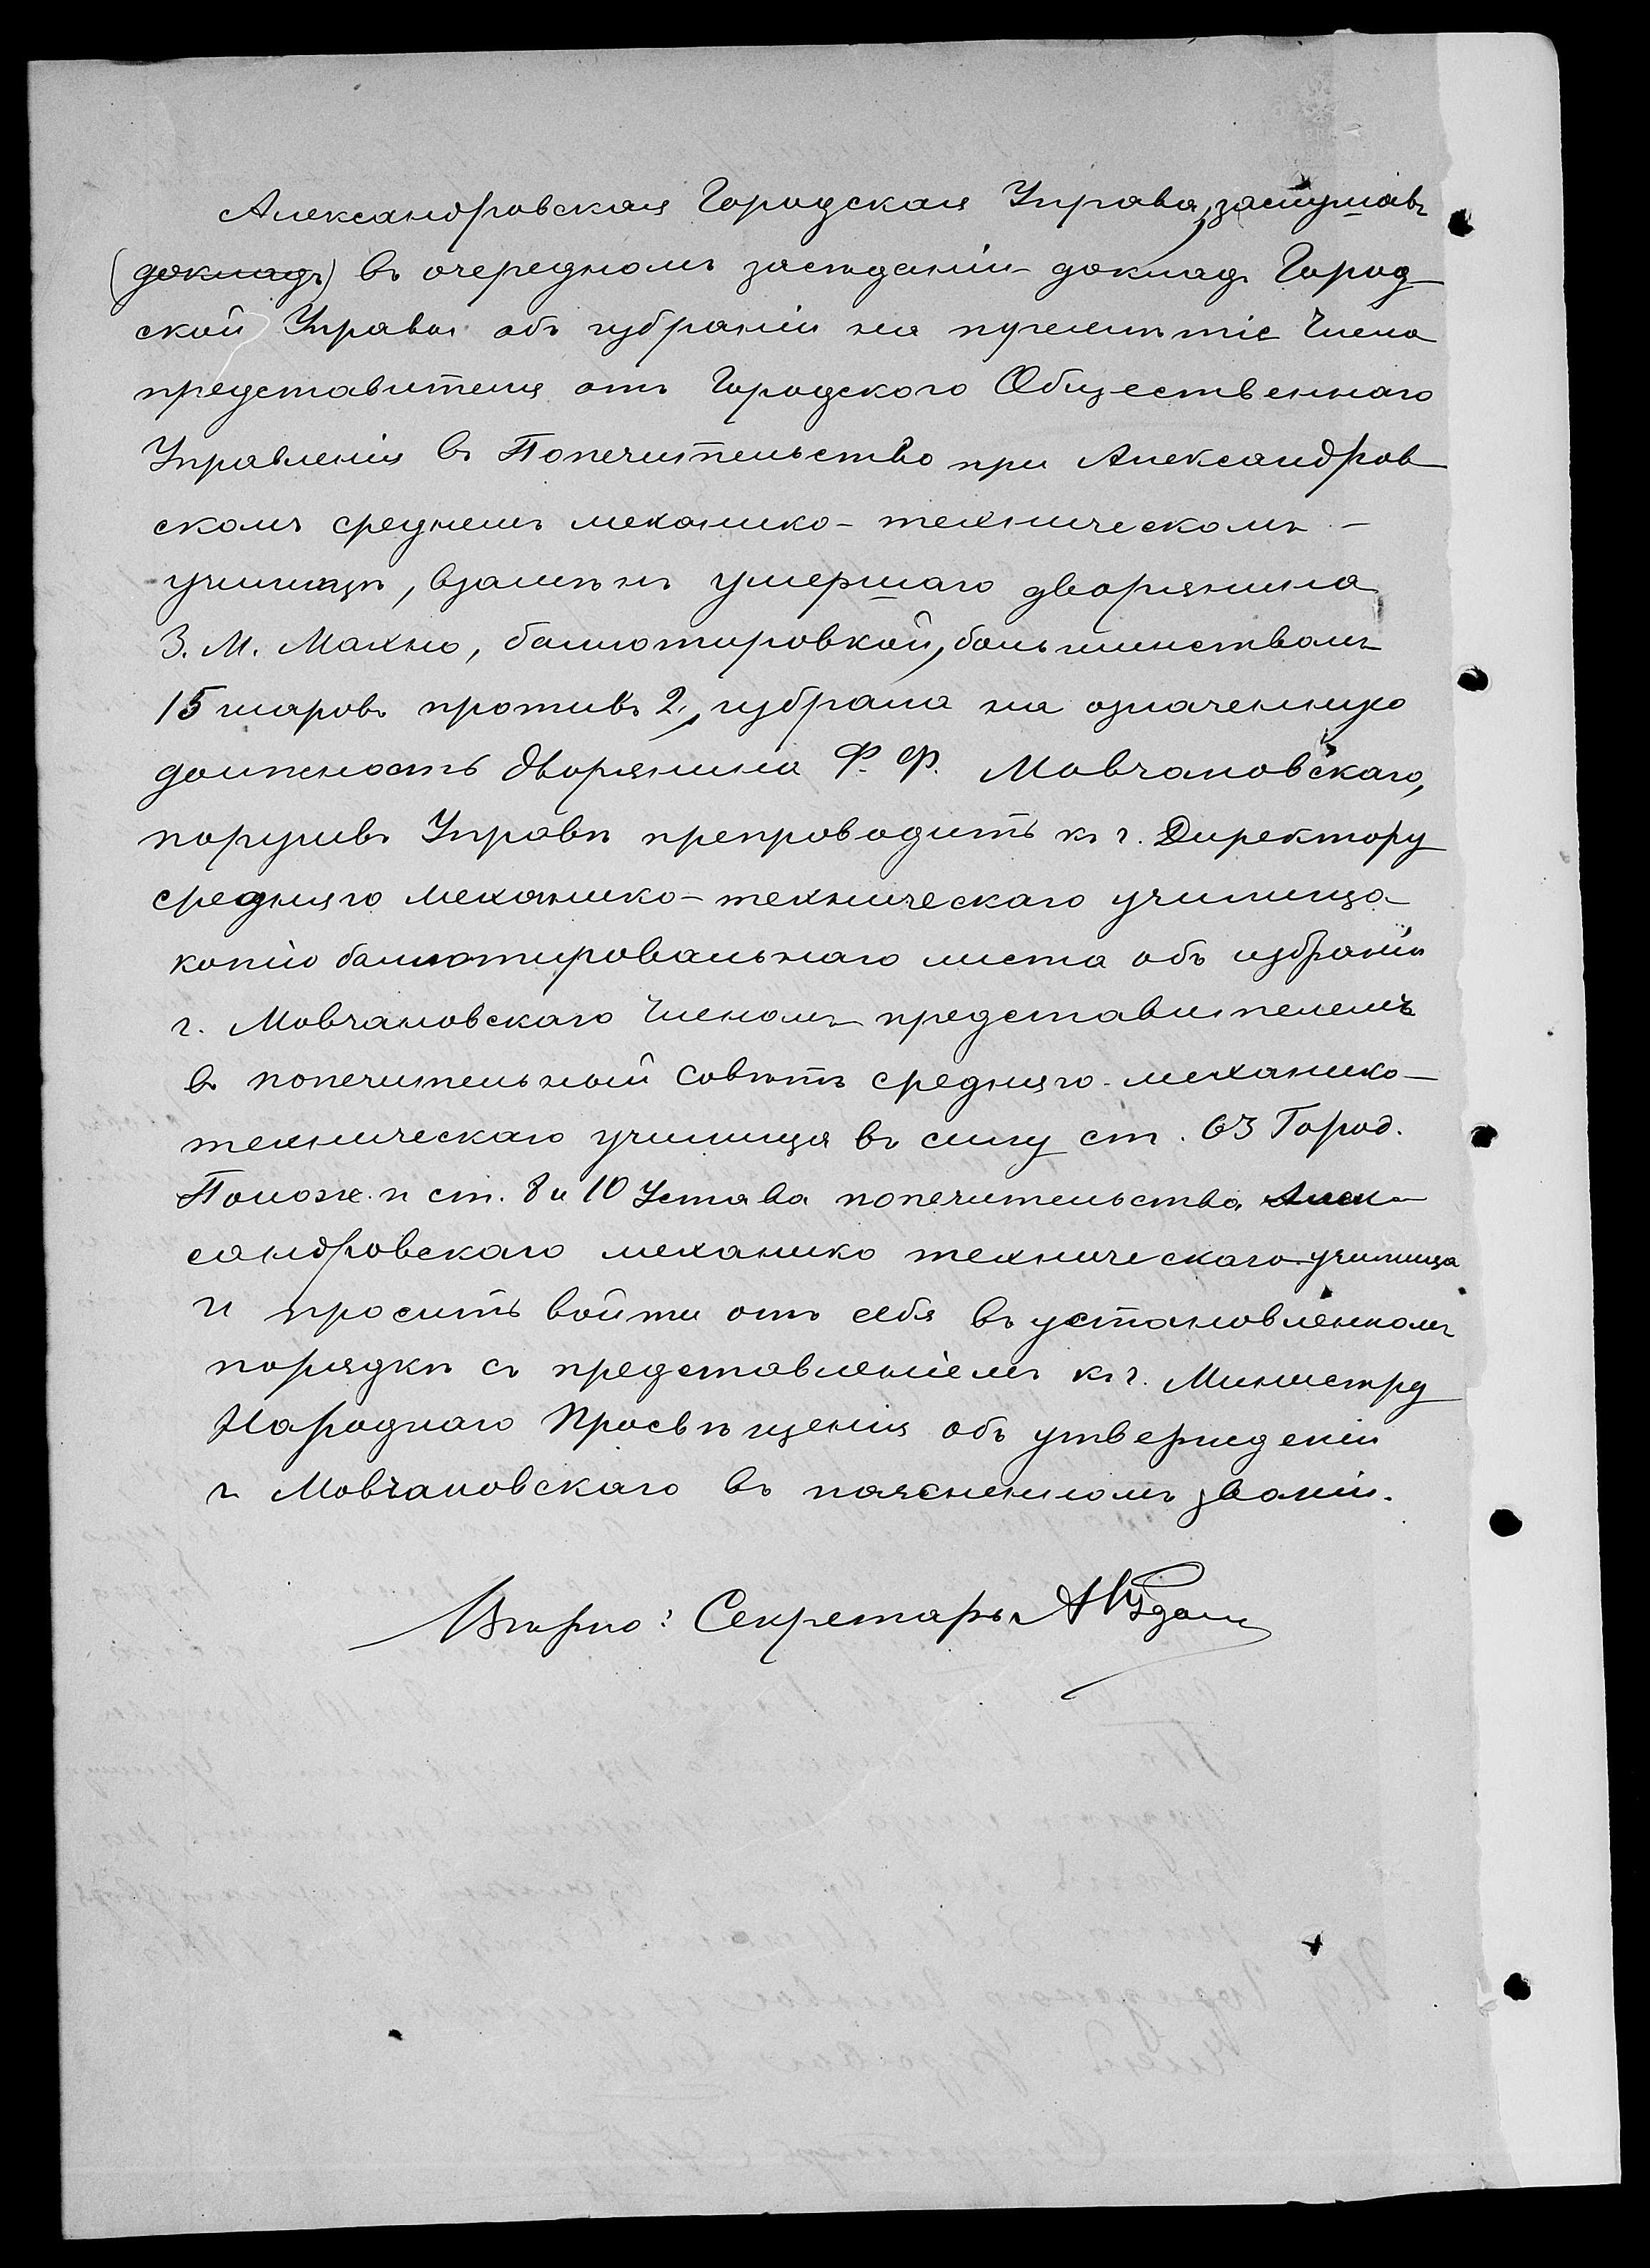 Александровская Городская Управа, заслушавъ
(докладъ) въ очередномъ засѣданіи докладъ Город-
ской Управы объ избраніи на пятилѣтіе Члена
представителя отъ Городского Общественнаго
Управленія въ Попечительство при Александров-
скомъ среднемъ механико-техническомъ -
училищѣ, взамѣнъ умершаго дворянина
З. М. Махно, баллотировкой, большинствомъ
15 шаровъ противъ 2, избрала на означенную
должность дворянина Ф. Ф. Мовчановскаго,
поручивъ Управѣ препроводить къ г. Директору
средняго механико-техническаго училища
копію баллотировальнаго листа объ избраніи
г. Мовчановскаго Членомъ представителемъ
въ попечительный совѣтъ средняго механико-
техническаго училища въ силу ст. 63 Город.
Полож. и ст. 8 и 10 Устава попечительства Алек-
сандровскаго механико техническаго училища
и просить войти отъ себя въ установленномъ
порядкѣ съ представленіемъ къ г. Министру
Народнаго Просвѣщенія объ утвержденіи
г. Мовчановскаго въ поясненномъ званіи.
Вѣрно: Секретарь